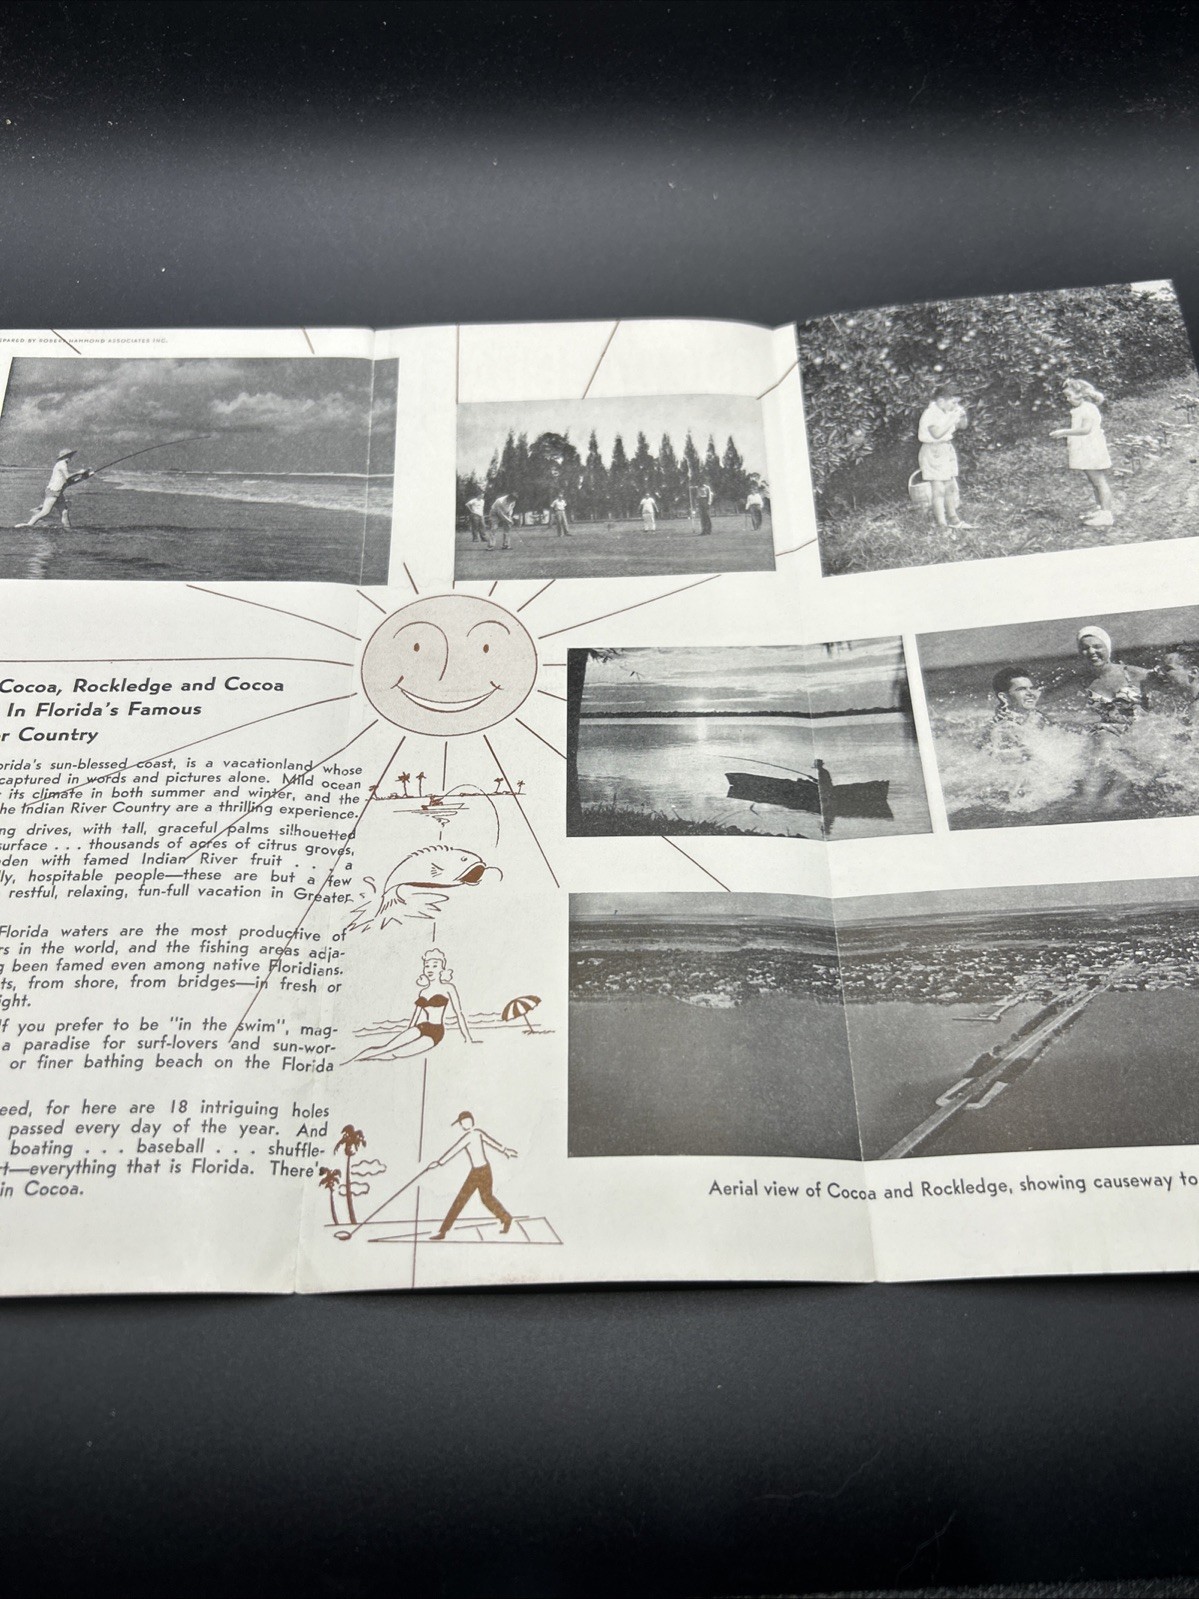 PREPARED BY ROBERT HAMMOND ASSOCIATES INC.
Cocoa, Rockledge and Cocoa
In Florida's Famous
Country
sun-blessed coast, is a vacationland whose
captured in words and pictures alone. Mild ocean
its climate in both summer and winter, and the
the Indian River Country are a thrilling experience.
drives, with tall, graceful palms silhouetted
surface . . . thousands of acres of citrus groves,
with famed Indian River fruit . . . a
hospitable people—these are but a few
restful, relaxing, fun-full vacation in Greater
Florida waters are the most productive of
in the world, and the fishing areas adja-
been famed even among native Floridians.
from shore, from bridges—in fresh or
If you prefer to be "in the swim", mag-
a paradise for surf-lovers and sun-wor-
or finer bathing beach on the Florida
for here are 18 intriguing holes
passed every day of the year. And
boating . . . baseball . . . shuffle-
—everything that is Florida. There's
in Cocoa.
Aerial view of Cocoa and Rockledge, showing causeway to